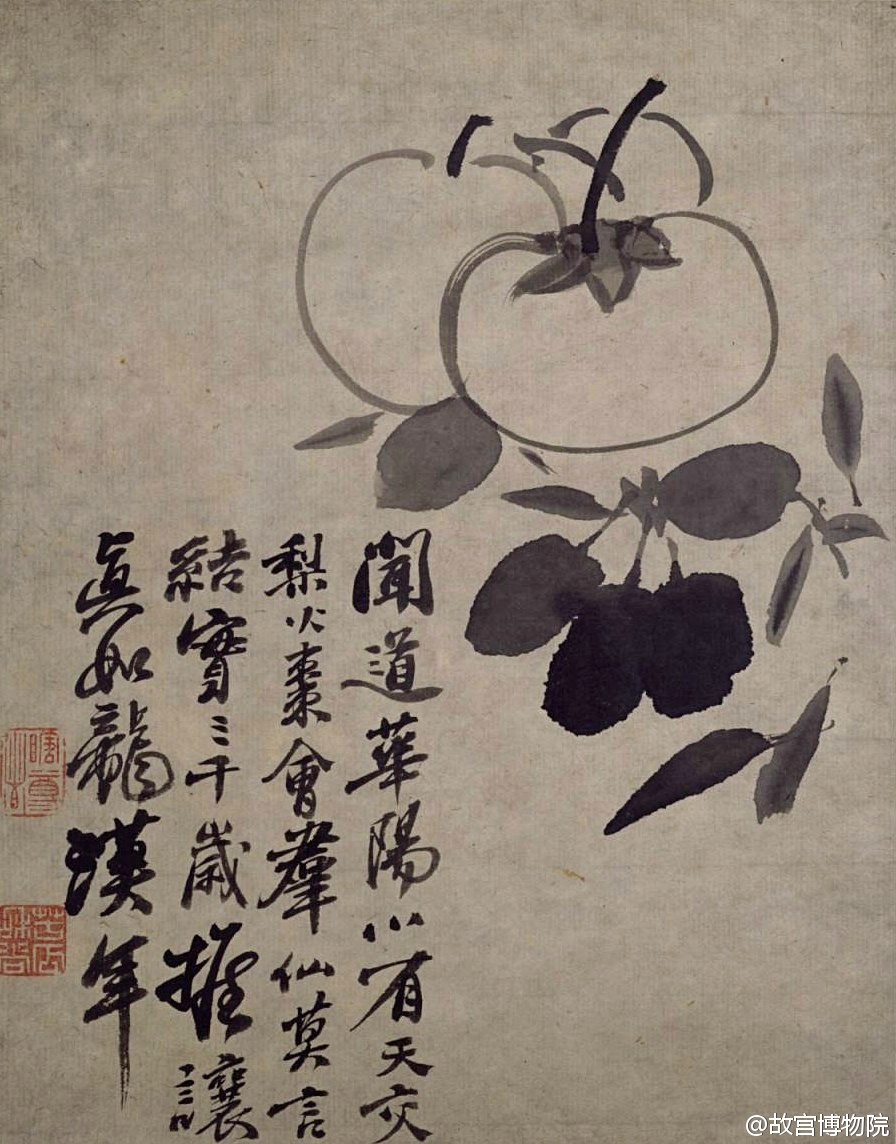 聞道華陽小有天交
梨火棗會羣仙莫言
結實三千歲推讓
眞如龍漢年
瞎尊者
@故宫博物院